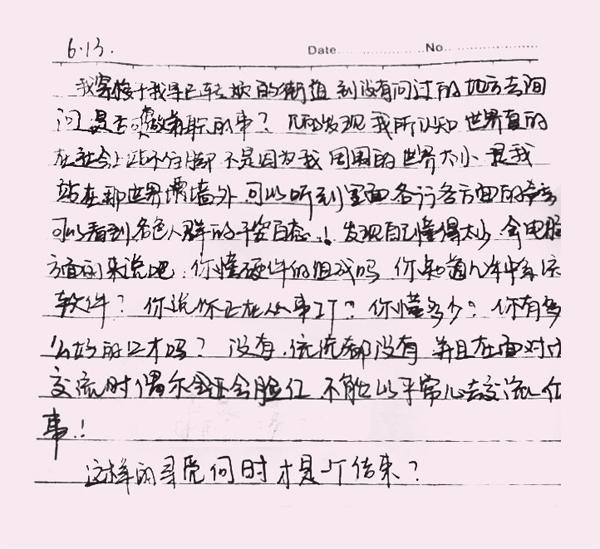 6.13.
Date No.
我穿梭于我早已车去坎的街道 到没有问过的地方去问
问是否可做兼职的事? 几秒发现我所认知世界真的
在社会上站不住脚 不是因为我周围的世界太小 是我
站在那世界墙外 可以听到里面各行各方面的
可以看到各色人群的平安百态.! 发现自己懂得太少 拿电脑
方面的来说吧. 你懂硬件的组成吗 你知道几种
软件? 你说你正在从事IT? 你懂多少? 你有多
么好的口才吗? 没有. 统统都没有 并且在面对
交流时偶尔 还会脸红 不能以平常心去交流
事.!
这样的寻觅何时才是个结束?